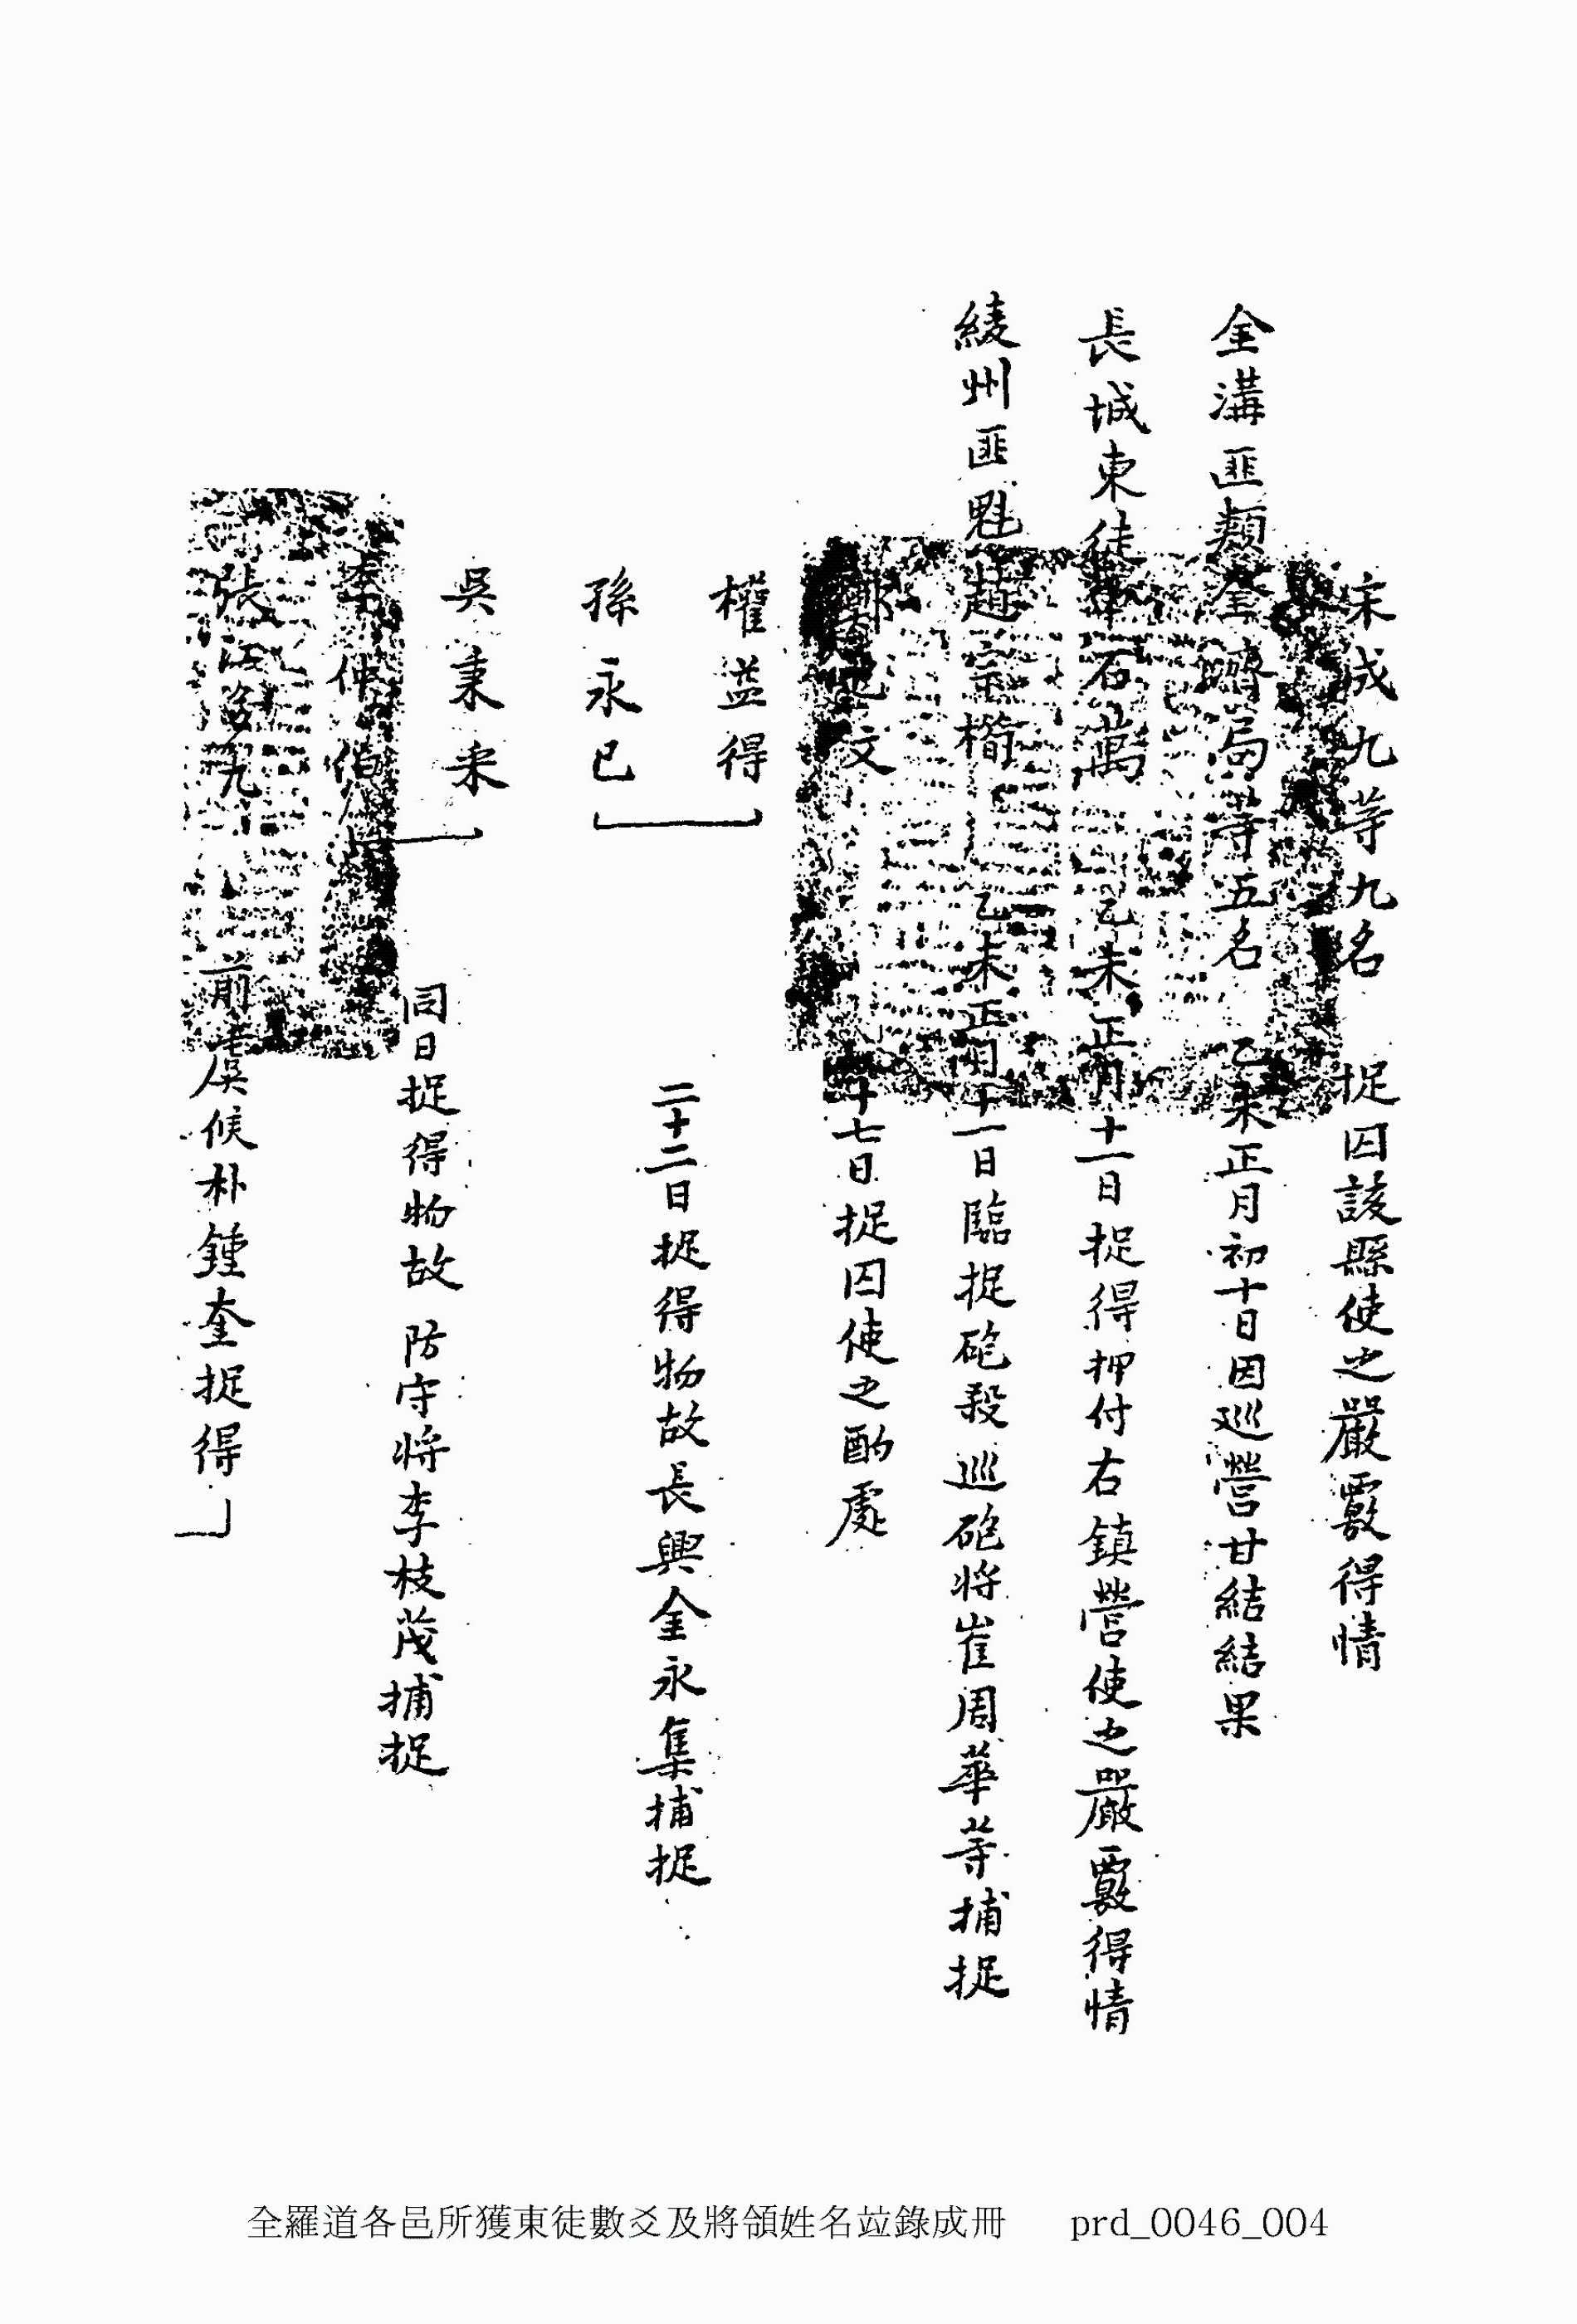 宋成九等九名 捉囚該縣使之嚴覈得情
金溝匪類 局等五名 乙未正月初十日因巡營甘結結果
長城東徒 石萬 乙未正月十一日捉得押付右鎮營使之嚴覈得情
綾州匪魁趙宗 乙未正月十一日臨捉砲殺巡砲將崔周華等捕捉
文 十七日捉囚使之酌處
權益得
孫永已 二十二日捉得物故長興金永集捕捉
吳秉来
李仲伯 同日捉得物故 防守將李枝茂捕捉
張 九 前虞候朴鍾奎捉得
全羅道各邑所獲東徒數爻及將領姓名竝錄成冊 prd_0046_004